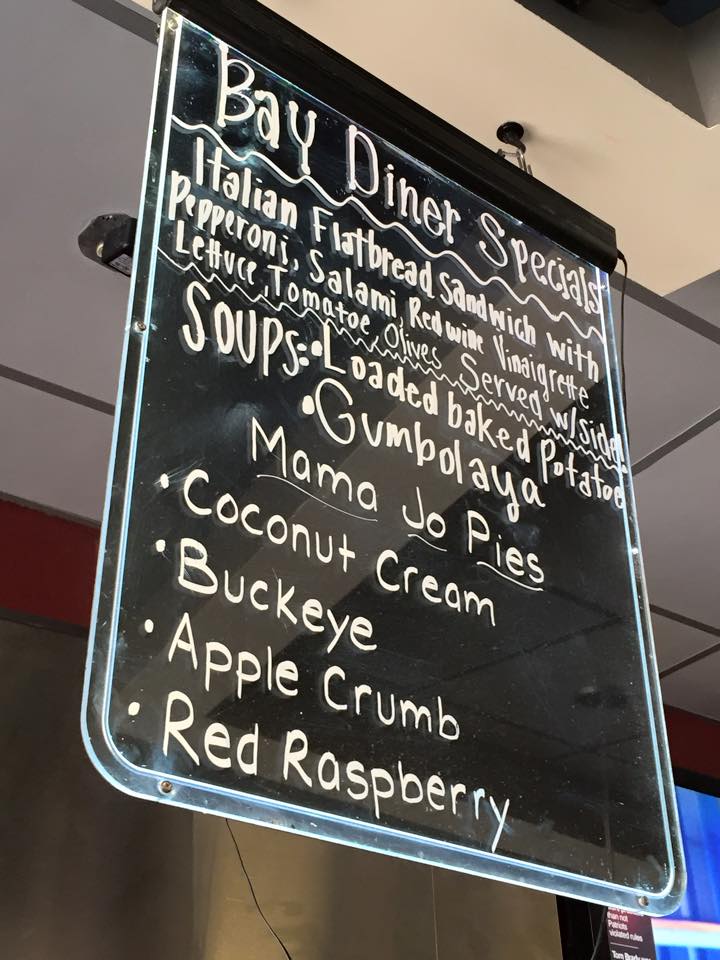 Bay Diner Specials
Italian Flatbread Sandwich with
Pepperoni, Salami, Red wine Vinaigrette
Lettuce, Tomatoe, Olives Served w/side.
Soups: • Loaded baked Potatoe
• Gumbolaya
Mama Jo Pies
• Coconut Cream
• Buckeye
• Apple Crumb
• Red Raspberry
than not
Patriots
violated rules
Tom Brady